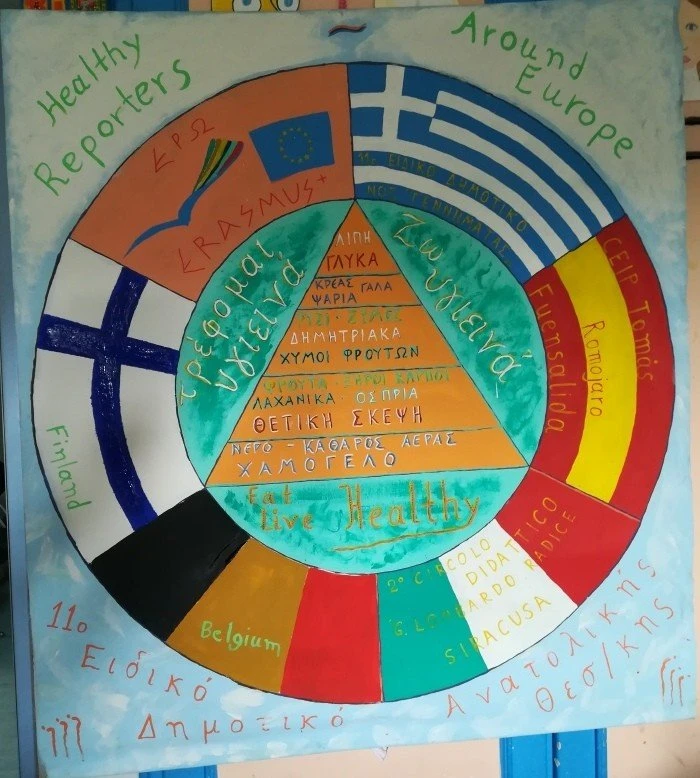 Healthy
Reporters
Around
Europe
ΕΡΩ
ERASMUS+
11ο ΕΙΔΙΚΟ ΔΗΜΟΤΙΚΟ
CEIP Tomás
Romojaro
Fuensalida
Τρέφομαι
υγιεινά
Ζω
υγιεινά
ΛΙΠΗ
ΓΛΥΚΑ
ΚΡΕΑΣ ΓΑΛΑ
ΨΑΡΙΑ
ΔΗΜΗΤΡΙΑΚΑ
ΧΥΜΟΙ ΦΡΟΥΤΩΝ
ΦΡΟΥΤΑ - ΞΗΡΟΙ ΚΑΡΠΟΙ
ΛΑΧΑΝΙΚΑ - ΟΣΠΡΙΑ
ΘΕΤΙΚΗ ΣΚΕΨΗ
ΝΕΡΟ - ΚΑΘΑΡΟΣ ΑΕΡΑΣ
ΧΑΜΟΓΕΛΟ
Eat
live Healthy
Finland
Belgium
2° CIRCOLO
DIDATTICO
G. LOMBARDO RADICE
SIRACUSA
11ο
Ειδικό
Δημοτικό
Ανατολικής
Θεσ/κης